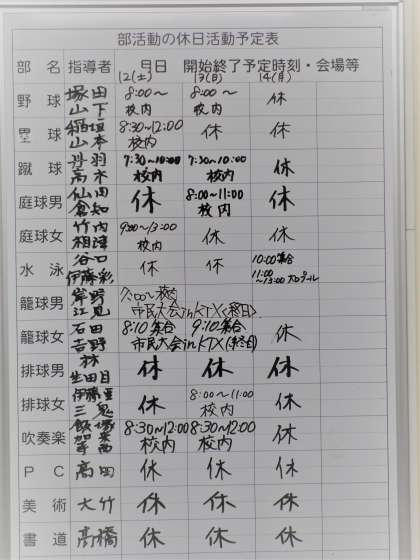 部活動の休日活動予定表
部 名 指導者 月日 開始終了予定時刻・会場等
12(土) 13(日) 14(月)
野 球 塚田 山下 8:00～ 校内 8:00～ 校内 休
塁 球 稲垣 山本 8:30~12:00 校内 休 休
蹴 球 丹羽 高木 7:30~10:00 校内 7:30~10:00 校内 休
庭球男 仙田 倉知 休 8:00~11:00 校内 休
庭球女 竹内 相津 9:00~13:00 校内 休 休
水 泳 谷口 伊藤彩 休 休 10:00集合 11:00 ~13:00 プール
籠球男 岸野 江見 7:00~ 校内 市民大会inKTX(終日)
籠球女 石田 吉野 8:10集合 9:10集合 市民大会inKTX(終日) 休
排球男 林 生田目 休 休 休
排球女 伊藤里 三鬼 休 8:00~11:00 校内 休
吹奏楽 飯塚 加 8:30~12:00 校内 8:30~12:00 校内 休
P C 高田 休 休 休
美 術 大竹 休 休 休
書 道 高橋 休 休 休